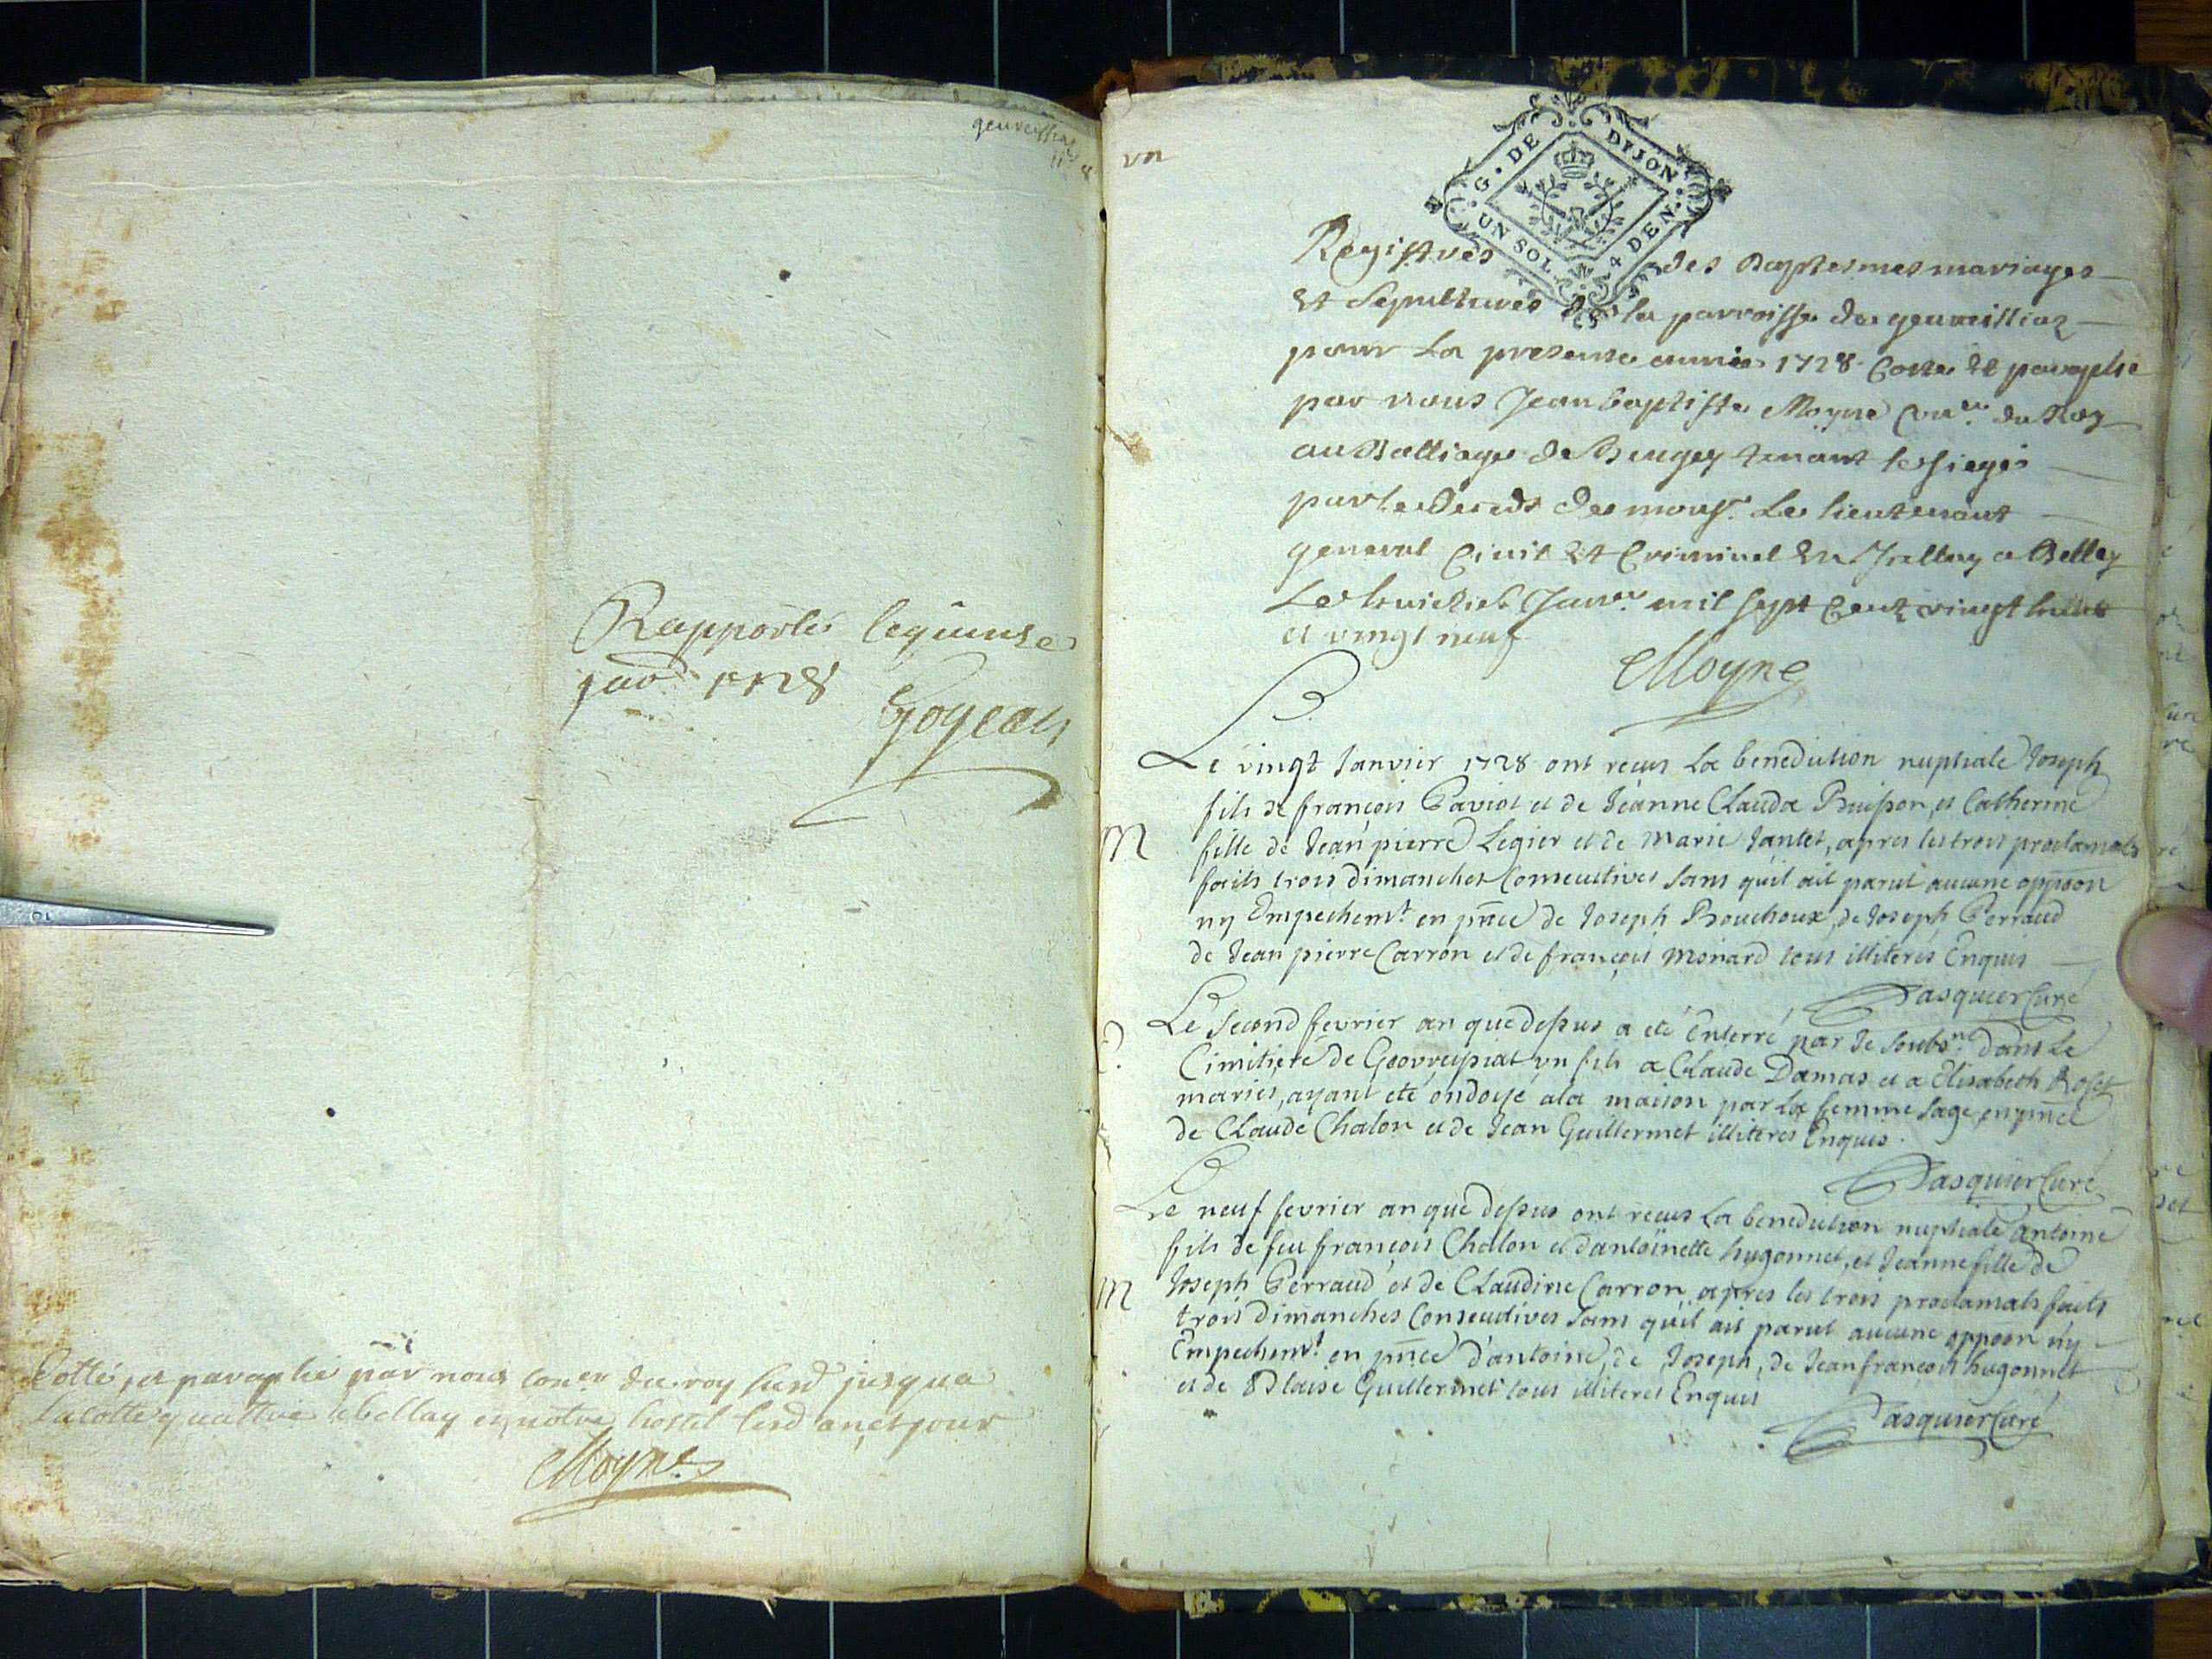 Rapporté le quinse
janv. 1728
Goyean
Cotté, et paraphé par nous con.er du roy susd jusqua
la cotte quattre a bellay en notre hostel lesd an et jour
Moyne
vn
G. DE DIJON
UN SOL 4 DEN.
Registres des Baptesmes mariages
Et Sepultures de la parroisse de geuveissiaz
pour La presente année 1728 Cotté Et paraphé
par nous Jean baptiste Moyne Con.er du Roy
au Balliage de Beugey tenant le siege
par le deceds de mons.r Le lieutenant
general Civil Et Criminel En Icelluy a Belley
Le huictie Janv.er mil sept Cent vingt huict
et vingt neuf
Moyne
Le vingt Janvier 1728 ont reçus La benediction nuptiale Joseph
fils de françois Paviot et de Jeanne Clauda Buisson, et Catherine
M
fille de Jean pierre Legier et de Marie Jantet, apres les trois proclamats
faits trois dimanches Consecutives sans qu'il ait parut aucune oppoon
ny Empechemt. en pnce de Joseph Bouchoux, de Joseph Perraud
de Jean pierre Carron et de françois Monard tous illiteres Enquis
Pasquier Curé
Le second fevrier an que dessus a eté Enterré par Je soubsné. dans Le
Cimitiere de Geovreissiat vn fils a Claude Damas et a Elisabeth Roset
mariés, ayant eté ondoyé a la maison par La femme sage, en pnce
de Claude Chalon et de Jean Guillermet illiteres Enquis.
Pasquier Curé
Le neuf fevrier an que dessus ont reçus La benediction nuptiale antoine
fils de feu françois Chalon et d'antoinette hugonnet, et Jeanne fille de
M
Joseph Perraud et de Claudine Carron, apres les trois proclamats faits
trois dimanches Consecutives sans qu'il ait parut aucune oppoon ny
Empechemt. en pnce d'antoine, de Joseph, de Jean françois hugonnet
et de Blaise Guillermet tous illiteres Enquis
Pasquier Curé